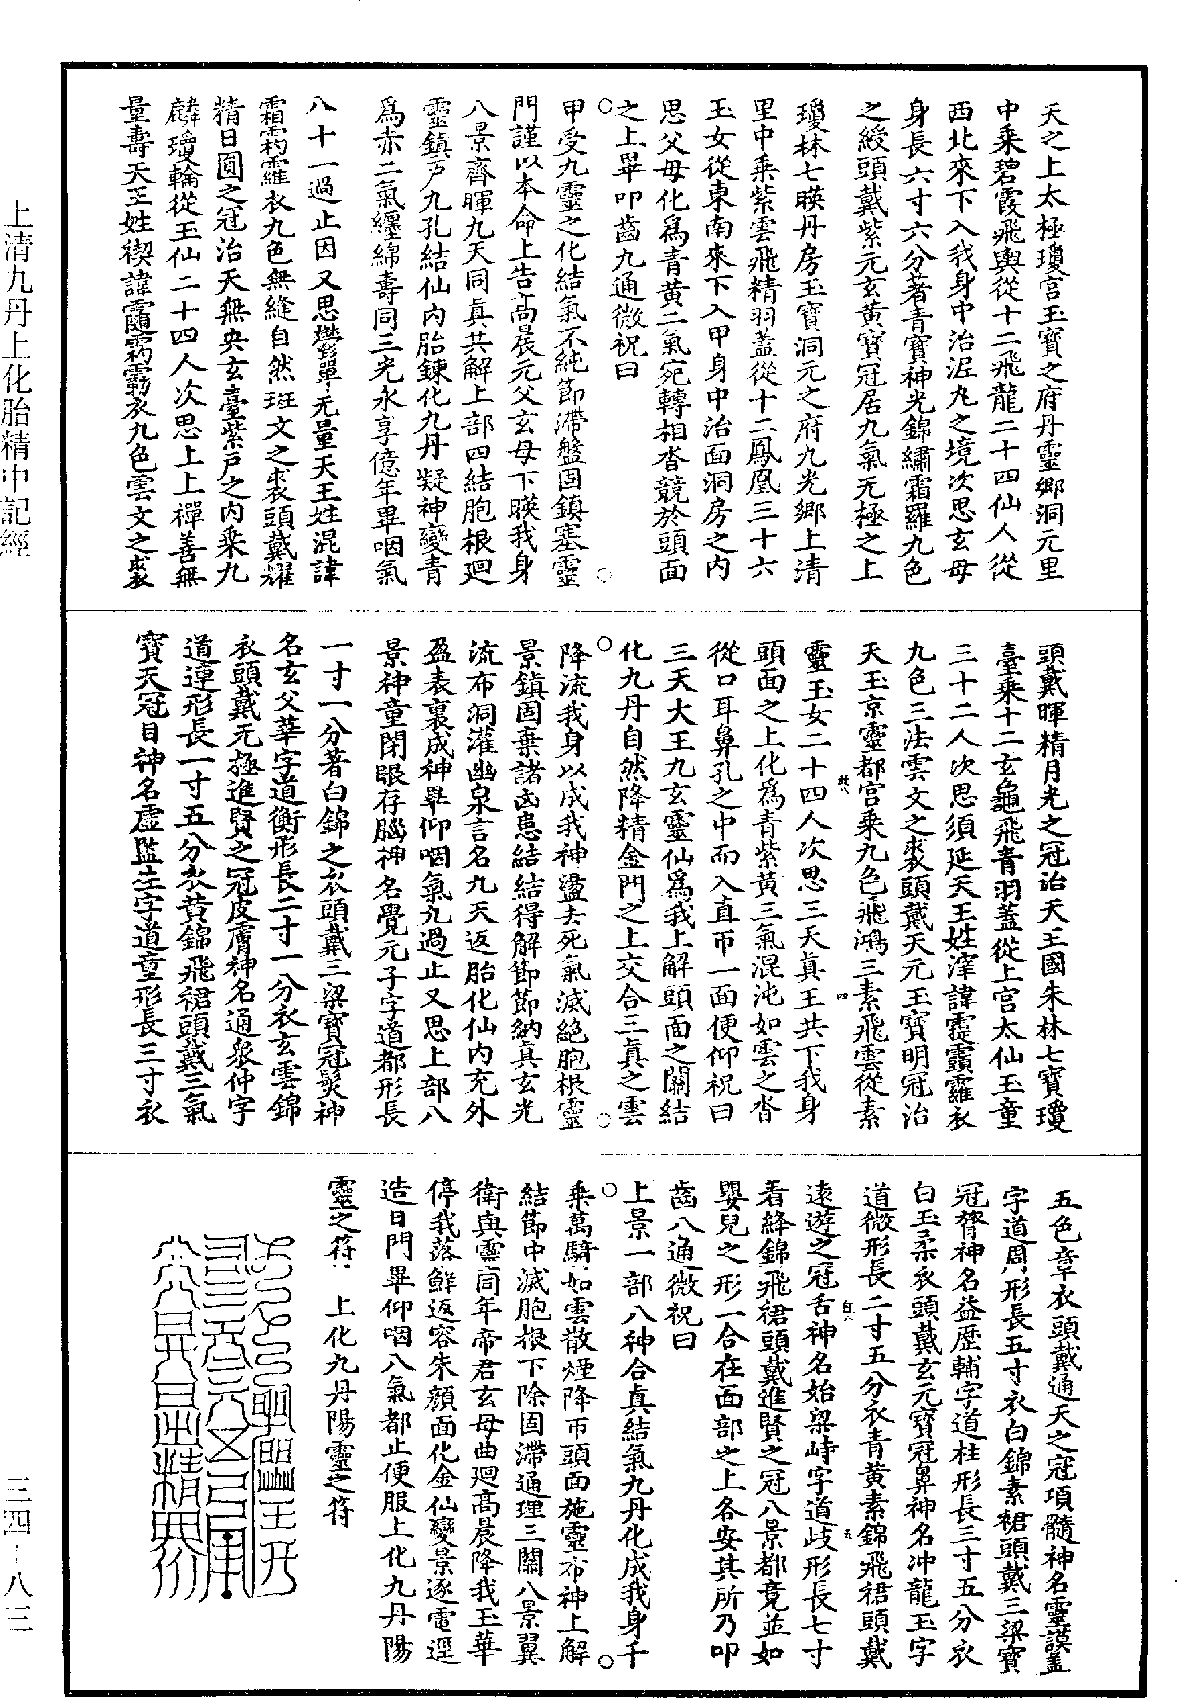 天之上太極瓊宮玉寶之府丹靈鄉洞元里
中乘碧霞飛輿從十二飛龍二十四仙人從
西北來下入我身中治泥丸之境次思玄母
身長六寸六分著青寶神光錦繡霜羅九色
之綬頭戴紫元玄黃寶冠居九氣无極之上
瓊林七暎丹房玉寶洞元之府九光鄉上清
里中乘紫雲飛精羽蓋從十二鳳凰三十六
玉女從東南來下入甲身中治面洞房之內
思父母化爲青黃二氣宛轉相沓競於頭面
之上畢叩齒九通微祝曰
甲受九靈之化結氣不純節滯盤固鎮塞靈
門謹以本命上告高晨元父玄母下暎我身
八景齊暉九天同真共解上部四結胞根迴
靈鎮戶九孔結仙內胎鍊化九丹凝神變青
爲赤二氣纏綿壽同三光永享億年畢咽氣
八十一過止因又思鬱單无量天王姓混諱
霜霱羅衣九色無縫自然斑文之裘頭戴耀
精日圓之冠治天無央玄臺紫戶之內乘九
麟瓊輪從玉仙二十四人次思上上禪善無
量壽天王姓禊諱衣九色雲文之裘
頭戴暉精月光之冠治天王國朱林七寶瓊
臺乘十二玄龜飛青羽蓋從上宮太仙玉童
三十二人次思須延天王姓滓諱羅衣
九色三法雲文之裘頭戴天元玉寶明冠治
天玉京靈都宮乘九色飛鴻三素飛雲從素
靈玉女二十四人次思三天真王共下我身
頭面之上化爲青紫黃三氣混沌如雲之沓
從口耳鼻孔之中而入直帀一面便仰祝曰
三天大王九玄靈仙爲我上解頭面之關結
化九丹自然降精金門之上交合三真之雲
降流我身以成我神盪去死氣滅絕胞根靈
景鎮固棄諸凶患結結得解節節納真玄光
流布洞灌幽泉言名九天返胎化仙內充外
盈表裏成神畢仰咽氣九過止又思上部八
景神童閉眼存腦神名覺元子字道都形長
一寸一分著白錦之衣頭戴三梁寶冠髮神
名玄父華字道衡形長二寸一分衣玄雲錦
衣頭戴无極進賢之冠皮膚神名通衆仲字
道連形長一寸五分衣黃錦飛裙頭戴三氣
寶天冠目神名虛監生字道童形長三寸衣
五色章衣頭戴通天之冠項髓神名靈謨蓋
字道周形長五寸衣白錦素裙頭戴三梁寶
冠膂神名益歷輔字道柱形長三寸五分衣
白玉柔衣頭戴玄元寶冠鼻神名沖龍玉字
道微形長二寸五分衣青黃素錦飛裙頭戴
遠遊之冠舌神名始梁峙字道歧形長七寸
着絳錦飛裙頭戴進賢之冠八景都竟並如
嬰兒之形一合在面部之上各安其所乃叩
齒八通微祝曰
上景一部八神合真結氣九丹化成我身千
乘萬騎如雲散煙降帀頭面施靈布神上解
結節中滅胞根下除固滯通理三關八景翼
衛與靈同年帝君玄母曲迴高晨降我玉華
停我落鮮返容朱顏面化金仙變景逐電逕
造日門畢仰咽八氣都止便服上化九丹陽
靈之符
上化九丹陽靈之符
上清九丹上化胎精中記經
三四·八三